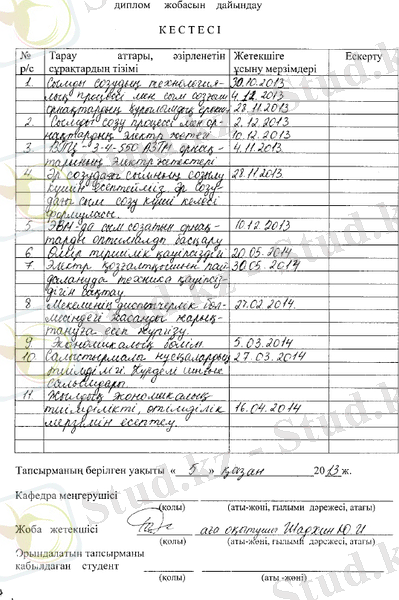 диплом жобасын дайындау
КЕСТЕСІ
№ р/с
Тарау аттары, әзірленетін сұрақтардың тізімі
Жетекшіге ұсыну мерзімдері
Ескерту
1. Сымды созудың технология-
лық процесі мен сым созғыш
30.10.2013
4.12.2013
28.11.2013
2. Сымды созу процесі мен ор-
нақтардың электр жетегі
2.12.2013
10.12.2013
3. ВПЦ 3-4-550 АЗТМ
тарының электржетектері
4.11.2013
4. Әр созудағы сымның созылу
күшін есептейміз. Әр созу-
дағы сым созу күші келесі
формуласы.
28.11.2013
5. ЭВМ-да сым созатын орнақ-
тарды оптималды басқару
10.12.2013
6. Өмір тіршілік қауіпсіздігі
20.05.2014
7. Электр қозғалтқышын пай-
далануда техника қауіпсіз-
дігін сақтау.
30.05.2014
8. Мекеменің диспетчерлік бөл-
месіндегі жасанды жарық-
тануға есеп жүргізу.
27.02.2014
9. Экономикалық бөлім
5.03.2014
10. Салыстырмалы нұсқалардың
тиімділігі. Күрделі
салымдары.
27.03.2014
11. Жылдық экономикалық
тиімділікті, өтімділік
мерзімін есептеу.
16.04.2014
Тапсырманың берілген уақыты « 5 » қазан 2013 ж.
Кафедра меңгерушісі
(қолы) (аты-жөні, ғылыми дәрежесі, атағы)
Жоба жетекшісі аға оқытушы Шадхин Ю.И
(қолы) (аты-жөні, ғылыми дәрежесі, атағы)
Орындалатын тапсырманы
қабылдаған студент
(қолы) (аты -жөні)
Stud.kz - Stud.kz